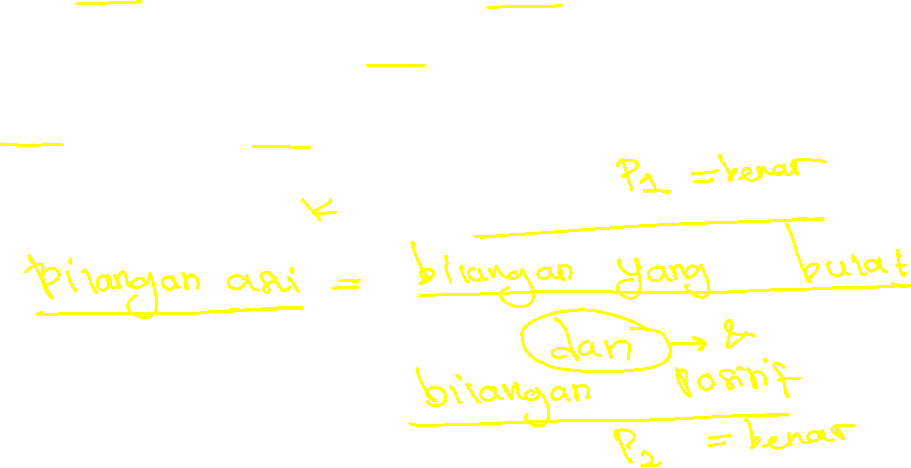 P1 = benar
bilangan asli = bilangan yang bulat
dan → &
bilangan positif
P2 = benar